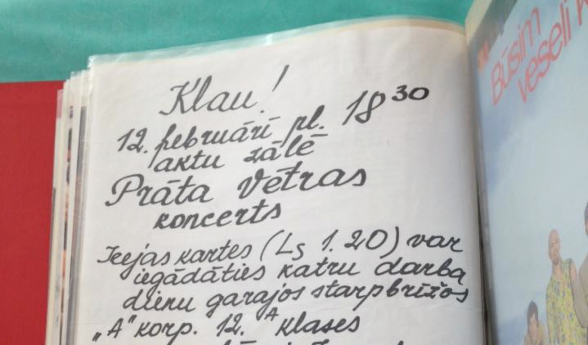 Klau!
12. februārī pl. 18³⁰
aktu zālē
Prāta Vētras
koncerts
Ieejas kartes (Ls 1.20) var
iegādāties katru darba
dienu garajos starpbrīžos
"A" korp. 12. A klases
Būsim
veseli